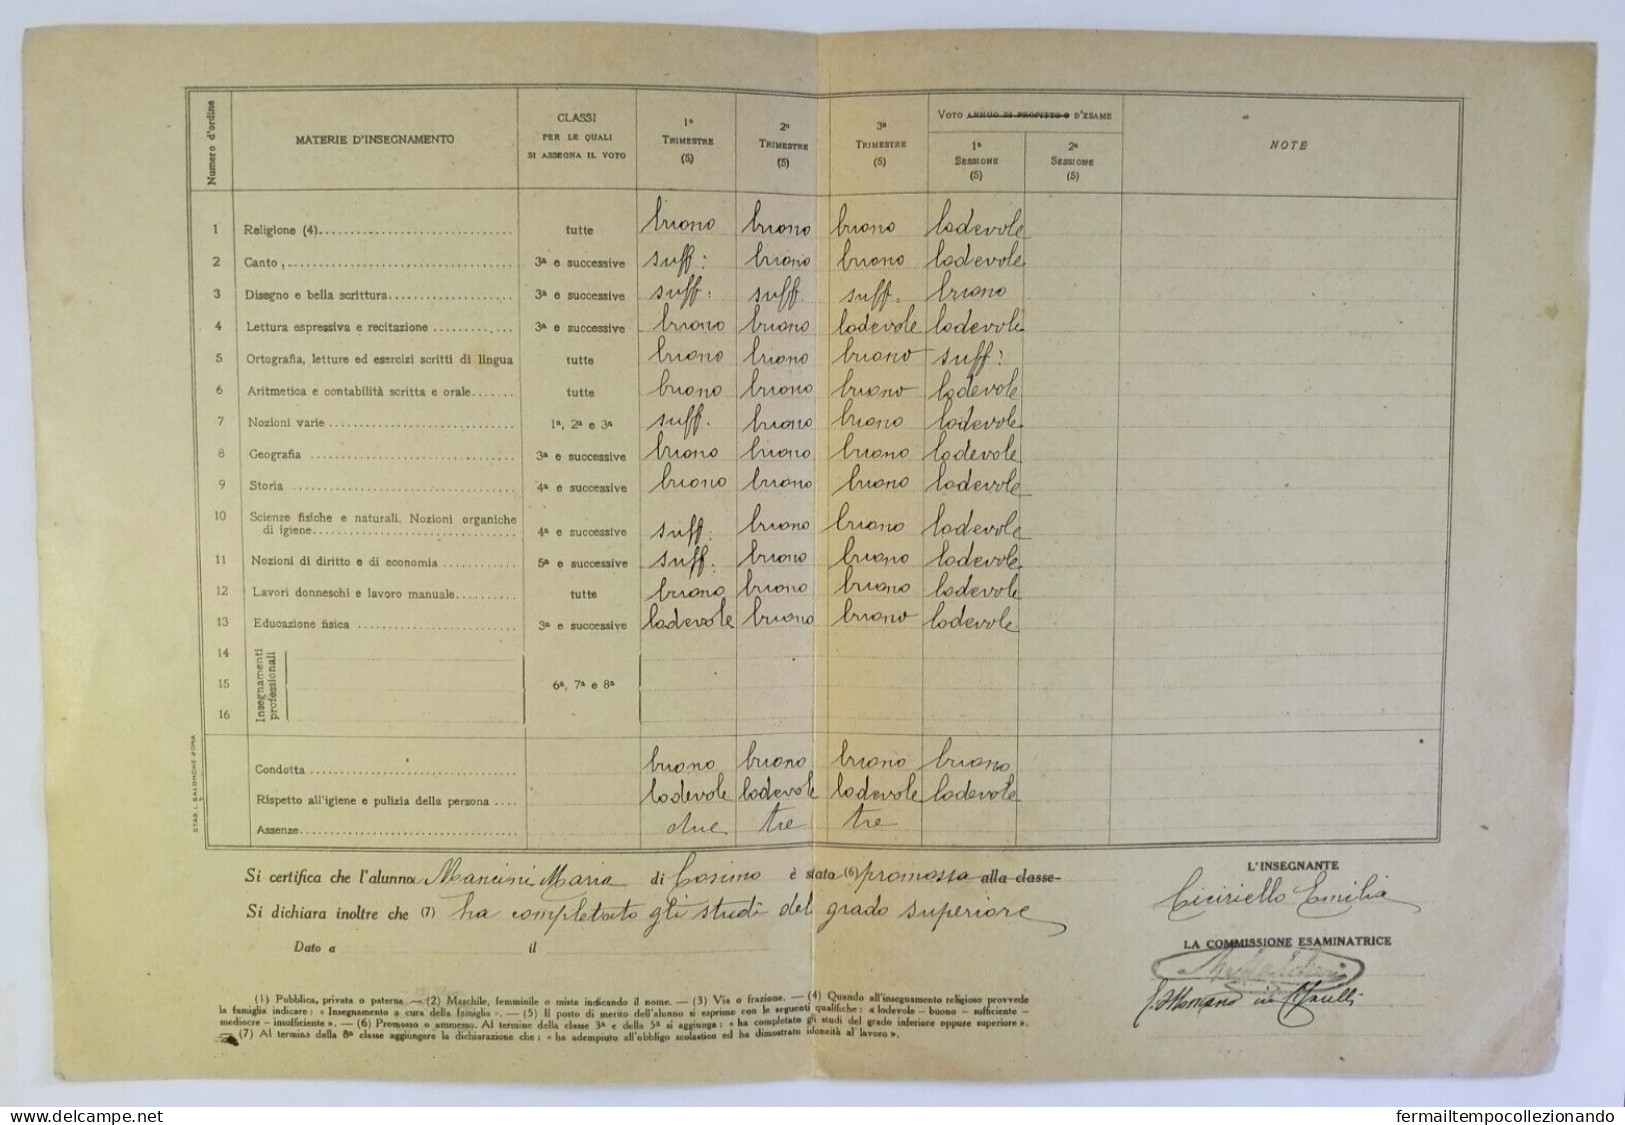 Numero d'ordine
MATERIE D'INSEGNAMENTO
CLASSI
PER LE QUALI
SI ASSEGNA IL VOTO
1º
TRIMESTRE
(5)
2º
TRIMESTRE
(5)
3º
TRIMESTRE
(5)
VOTO ANNUO DI PROFITTO O D'ESAME
1ª
SESSIONE
(5)
2ª
SESSIONE
(5)
NOTE
1 Religione (4) tutte buono buono buono lodevole
2 Canto 3ª e successive suff: buono buono lodevole
3 Disegno e bella scrittura 3ª e successive suff: suff. suff. buono
4 Lettura espressiva e recitazione 3ª e successive buono buono lodevole lodevole
5 Ortografia, letture ed esercizi scritti di lingua tutte buono buono buono suff:
6 Aritmetica e contabilità scritta e orale tutte buono buono buono lodevole
7 Nozioni varie 1ª, 2ª e 3ª suff. buono buono lodevole
8 Geografia 3ª e successive buono buono buono lodevole
9 Storia 4ª e successive buono buono buono lodevole
10 Scienze fisiche e naturali. Nozioni organiche
di igiene 4ª e successive suff: buono buono lodevole
11 Nozioni di diritto e di economia 5ª e successive suff: buono buono lodevole
12 Lavori donneschi e lavoro manuale tutte buono buono buono lodevole
13 Educazione fisica 3ª e successive lodevole buono buono lodevole
14
15 Insegnamenti professionali 6ª, 7ª e 8ª
16
Condotta buono buono buono buono
Rispetto all'igiene e pulizia della persona lodevole lodevole lodevole lodevole
Assenze due tre tre
STAB. L. SALOMONE ROMA
Si certifica che l'alunna Mancini Maria di Cosimo è stata (6) promossa alla classe
Si dichiara inoltre che (7) ha completato gli studi del grado superiore
Dato a il
L'INSEGNANTE
Ciciriello Emilia
LA COMMISSIONE ESAMINATRICE
(1) Pubblica, privata o paterna. — (2) Maschile, femminile o mista indicando il nome. — (3) Via o frazione. — (4) Quando all'insegnamento religioso provvede
la famiglia indicare: « Insegnamento a cura della famiglia ». — (5) Il posto di merito dell'alunno si esprime con le seguenti qualifiche: « lodevole - buono - sufficiente -
mediocre - insufficiente ». — (6) Promosso o ammesso. Al termine della classe 3ª e della 5ª si aggiunga: « ha completato gli studi del grado inferiore oppure superiore ».
— (7) Al termine della 8ª classe aggiungere la dichiarazione che: « ha adempiuto all'obbligo scolastico ed ha dimostrato idoneità al lavoro ».
www.delcampe.net
fermailtempocollezionando